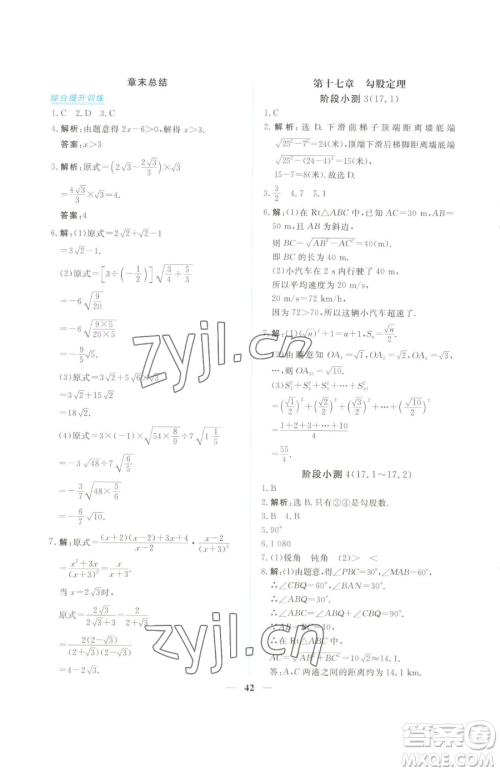 章末总结
综合提升训练
1. C　2. D　3. C
4. 解析：由题意得 2x－6＞0，解得
x＞3
答案：x＞3
5. 解析：原式＝(2√3－2√3/3)×√3
＝4√3/3×√3
＝4.
答案：4
6. 解：(1)原式＝3√2＋√2－1
＝4√2－1.
(2)原式＝[3÷(－1/2)]√(3/4÷5/3)
＝－6√(9/20)
＝－6√(9×5/20×5)
＝－9/5√5.
(3)原式＝3√2＋5√6×√3
＝3√2＋15√2
＝18√2.
(4)原式＝3×(－1)×√(54×8/9)÷7√3
＝－3√48÷7√
＝－√48×
＝－√10.
7. 解：原式＝(x＋2)(x－2)＋3x＋4/x－2·x－2/(x＋3)²
＝x²＋3x/(x＋3)²
＝x/x＋3.
当 x＝2√3 时，
原式＝2√3/2√3＋3
＝2(2－√3)/(2＋√3)(2－√3)
＝4－2√3.
第十七章　勾股定理
阶段小测 3(17.1)
1. C
2. 解析：选 D. 下滑前梯子顶端距离墙底端
√25²－7²＝24(米)，顶端下滑后梯脚距离墙底端
√25²－(24－4)²＝15(米)，
15－7＝8(米).
3. 3/2　4. 7　5. 1
6. 解：(1)在 Rt△ABC 中，已知 AC＝
30 m，AB 为斜边，
则 BC＝√AB²－AC²＝40(m).
即 BC 的长度为 40 m.
(2)小汽车在 2 s 内行驶了 40 m，
所以平均速度为 20 m/s，
20 m/s＝72 km/h，
因为 72＞70，所以这辆小汽车超速了.
7. 解：(1)(√n)²＋1＝n＋1，Sₙ＝√n/2.
(2)由题意可知，OAₙ＝√n，
所以 OA₁₀＝√10.
(3)S₁²＋S₂²＋…＋S₁₀²
＝(√1/2)²＋(√2/2)²＋…＋(√10/2)²
＝55/4.
阶段小测 4(17.1～17.2)
1. B
2. 解析：选 B. 只有③④是勾股数.
3. B　4. B
5. 90°
6. 1 080
7. (1)锐角　钝角　(2)＞　＜
8. 解：(1)由题意，得∠PBC＝30°，∠MAB＝60°，
∴∠CBQ＝60°，∠BAN＝30°，
∴∠ABQ＝30°，
∴∠ABC＝90°.
∵AB＝BC＝10，
∴在 Rt△ABC 中，
AC＝√AB²＋BC²＝10√2≈14.1.
答：A、C 两港之间的距离约为 14.1 km.
42
zyjl.cn
zyjl.cn